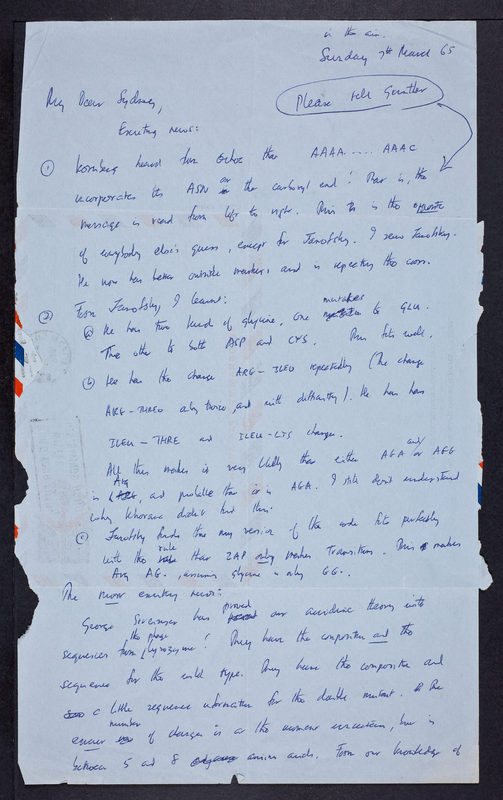 in the air.
Sunday 7th March 65
My Dear Sydney,
Please tell Gunther
Exciting news:
① Kornberg heard from Ochoa that AAAA.....AAAC
incorporates its ASN at the carboxyl end! That is, the
message is read from left to right. This is the opposite
of everybody else's guess, except for Yanofsky. I saw Yanofsky.
He now has better outside markers and is repeating the cross.
② From Yanofsky, I learnt:
ⓐ He has two kinds of glycine, one mutates to GLU.
The other to both ASP and CYS. This fits well.
ⓑ He has the change ARG–ILEU repeatedly (The change
ARG–THREO only twice, and with difficulty). He has
ILEU–THRE and ILEU–LYS changes.
All this makes it very likely that either AGA and/or AGG
is Arg, and probable that it is AGA. I still don't understand
why Khorana didn't find this.
ⓒ Yanofsky finds that my version of the code fits perfectly
with the rule that 2AP only makes transitions. This makes
Arg AG., assuming glycine is only GG..
The most exciting news:
George Streisinger has proved our acridine theory with
sequences from the phage lysozyme! They have the composition and the
sequence for the wild type. They have the composition and
a little sequence information for the double mutant. The
exact number of changes is at the moment uncertain, but is
between 5 and 8 amino acids. From our knowledge of